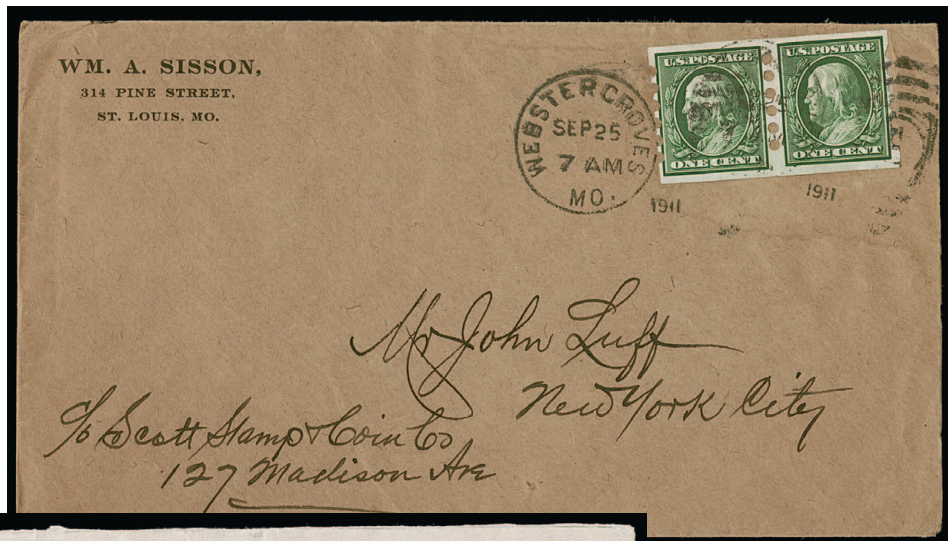 WM. A. SISSON,
314 PINE STREET,
ST. LOUIS, MO.
WEBSTER GROVES
SEP 25
7 AM
MO.
1911
U.S. POSTAGE
ONE CENT
U.S. POSTAGE
ONE CENT
1911
Mr John Luff
New York City
c/o Scott Stamp & Coin Co
127 Madison Ave